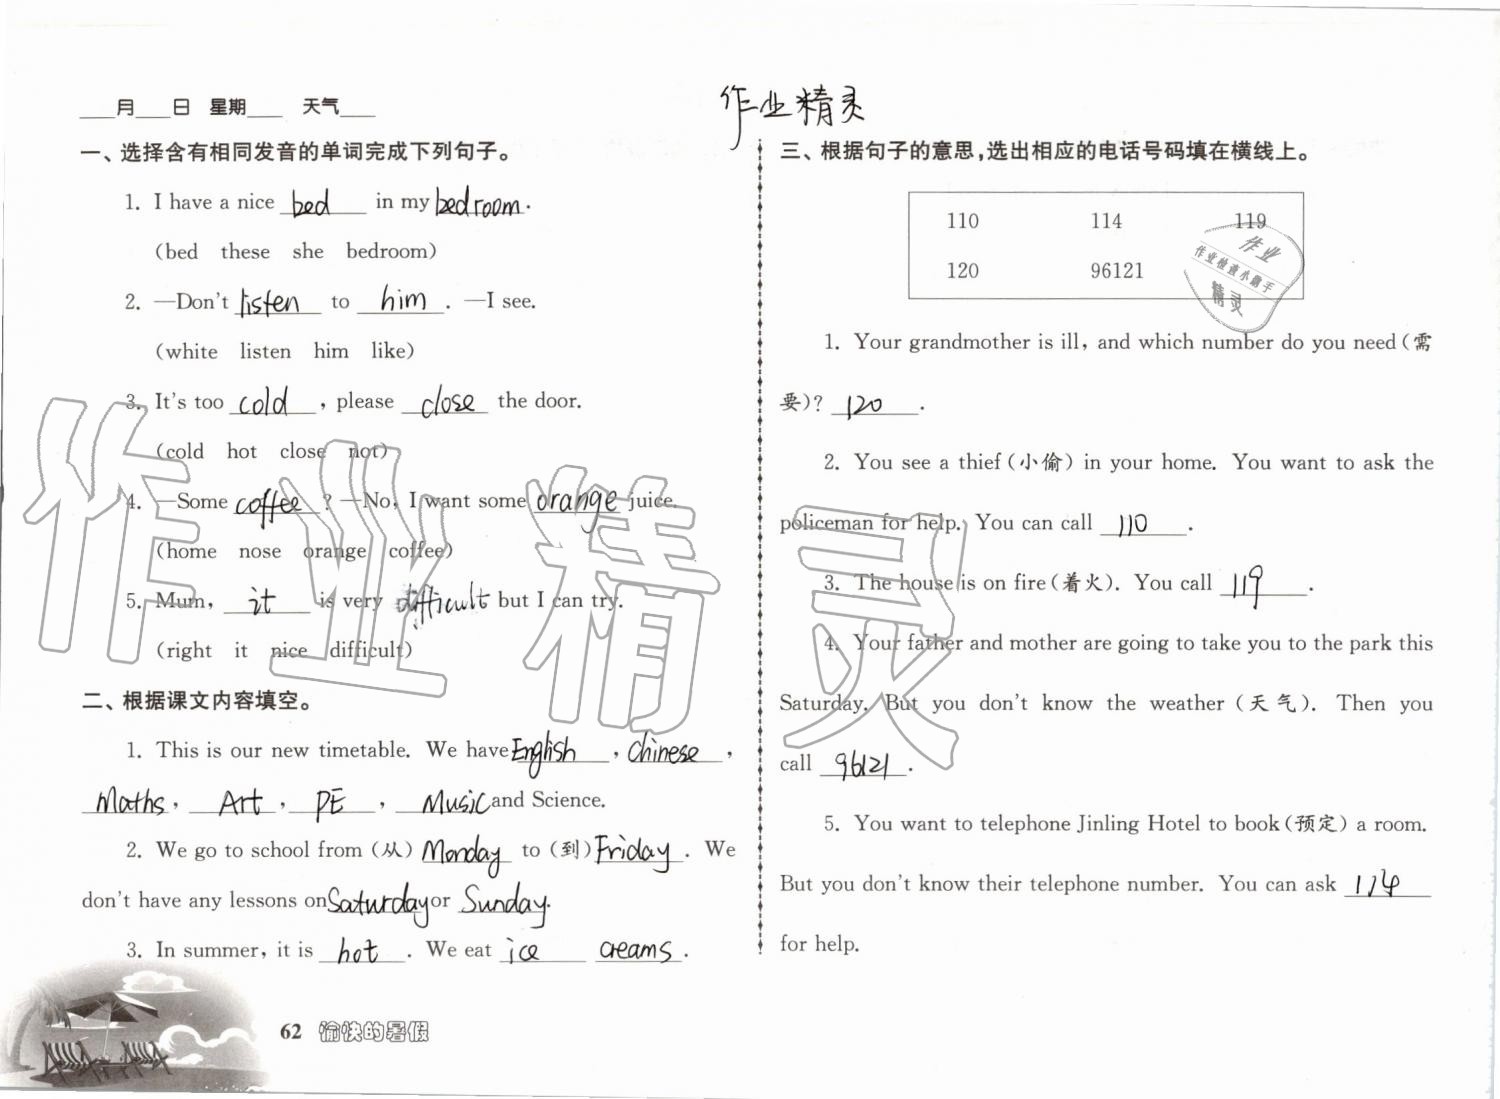 作业精灵
___月___日 星期___ 天气___
一、选择含有相同发音的单词完成下列句子。
1. I have a nice bed in my bedroom.
(bed these she bedroom)
2. —Don't listen to him. —I see.
(white listen him like)
3. It's too cold, please close the door.
(cold hot close not)
4. —Some coffee? —No, I want some orange juice.
(home nose orange coffee)
5. Mum, it is very difficult but I can try.
(right it nice difficult)
二、根据课文内容填空。
1. This is our new timetable. We have English, Chinese,
Maths, Art, PE, Music and Science.
2. We go to school from (从) Monday to (到) Friday. We
don't have any lessons on Saturday or Sunday.
3. In summer, it is hot. We eat ice creams.
62 愉快的暑假
三、根据句子的意思,选出相应的电话号码填在横线上。
110 114 119
120 96121
作业
作业检查小助手
精灵
1. Your grandmother is ill, and which number do you need(需
要)? 120.
2. You see a thief(小偷) in your home. You want to ask the
policeman for help. You can call 110.
3. The house is on fire(着火). You call 119.
4. Your father and mother are going to take you to the park this
Saturday. But you don't know the weather (天气). Then you
call 96121.
5. You want to telephone Jinling Hotel to book(预定) a room.
But you don't know their telephone number. You can ask 114
for help.
作业精灵